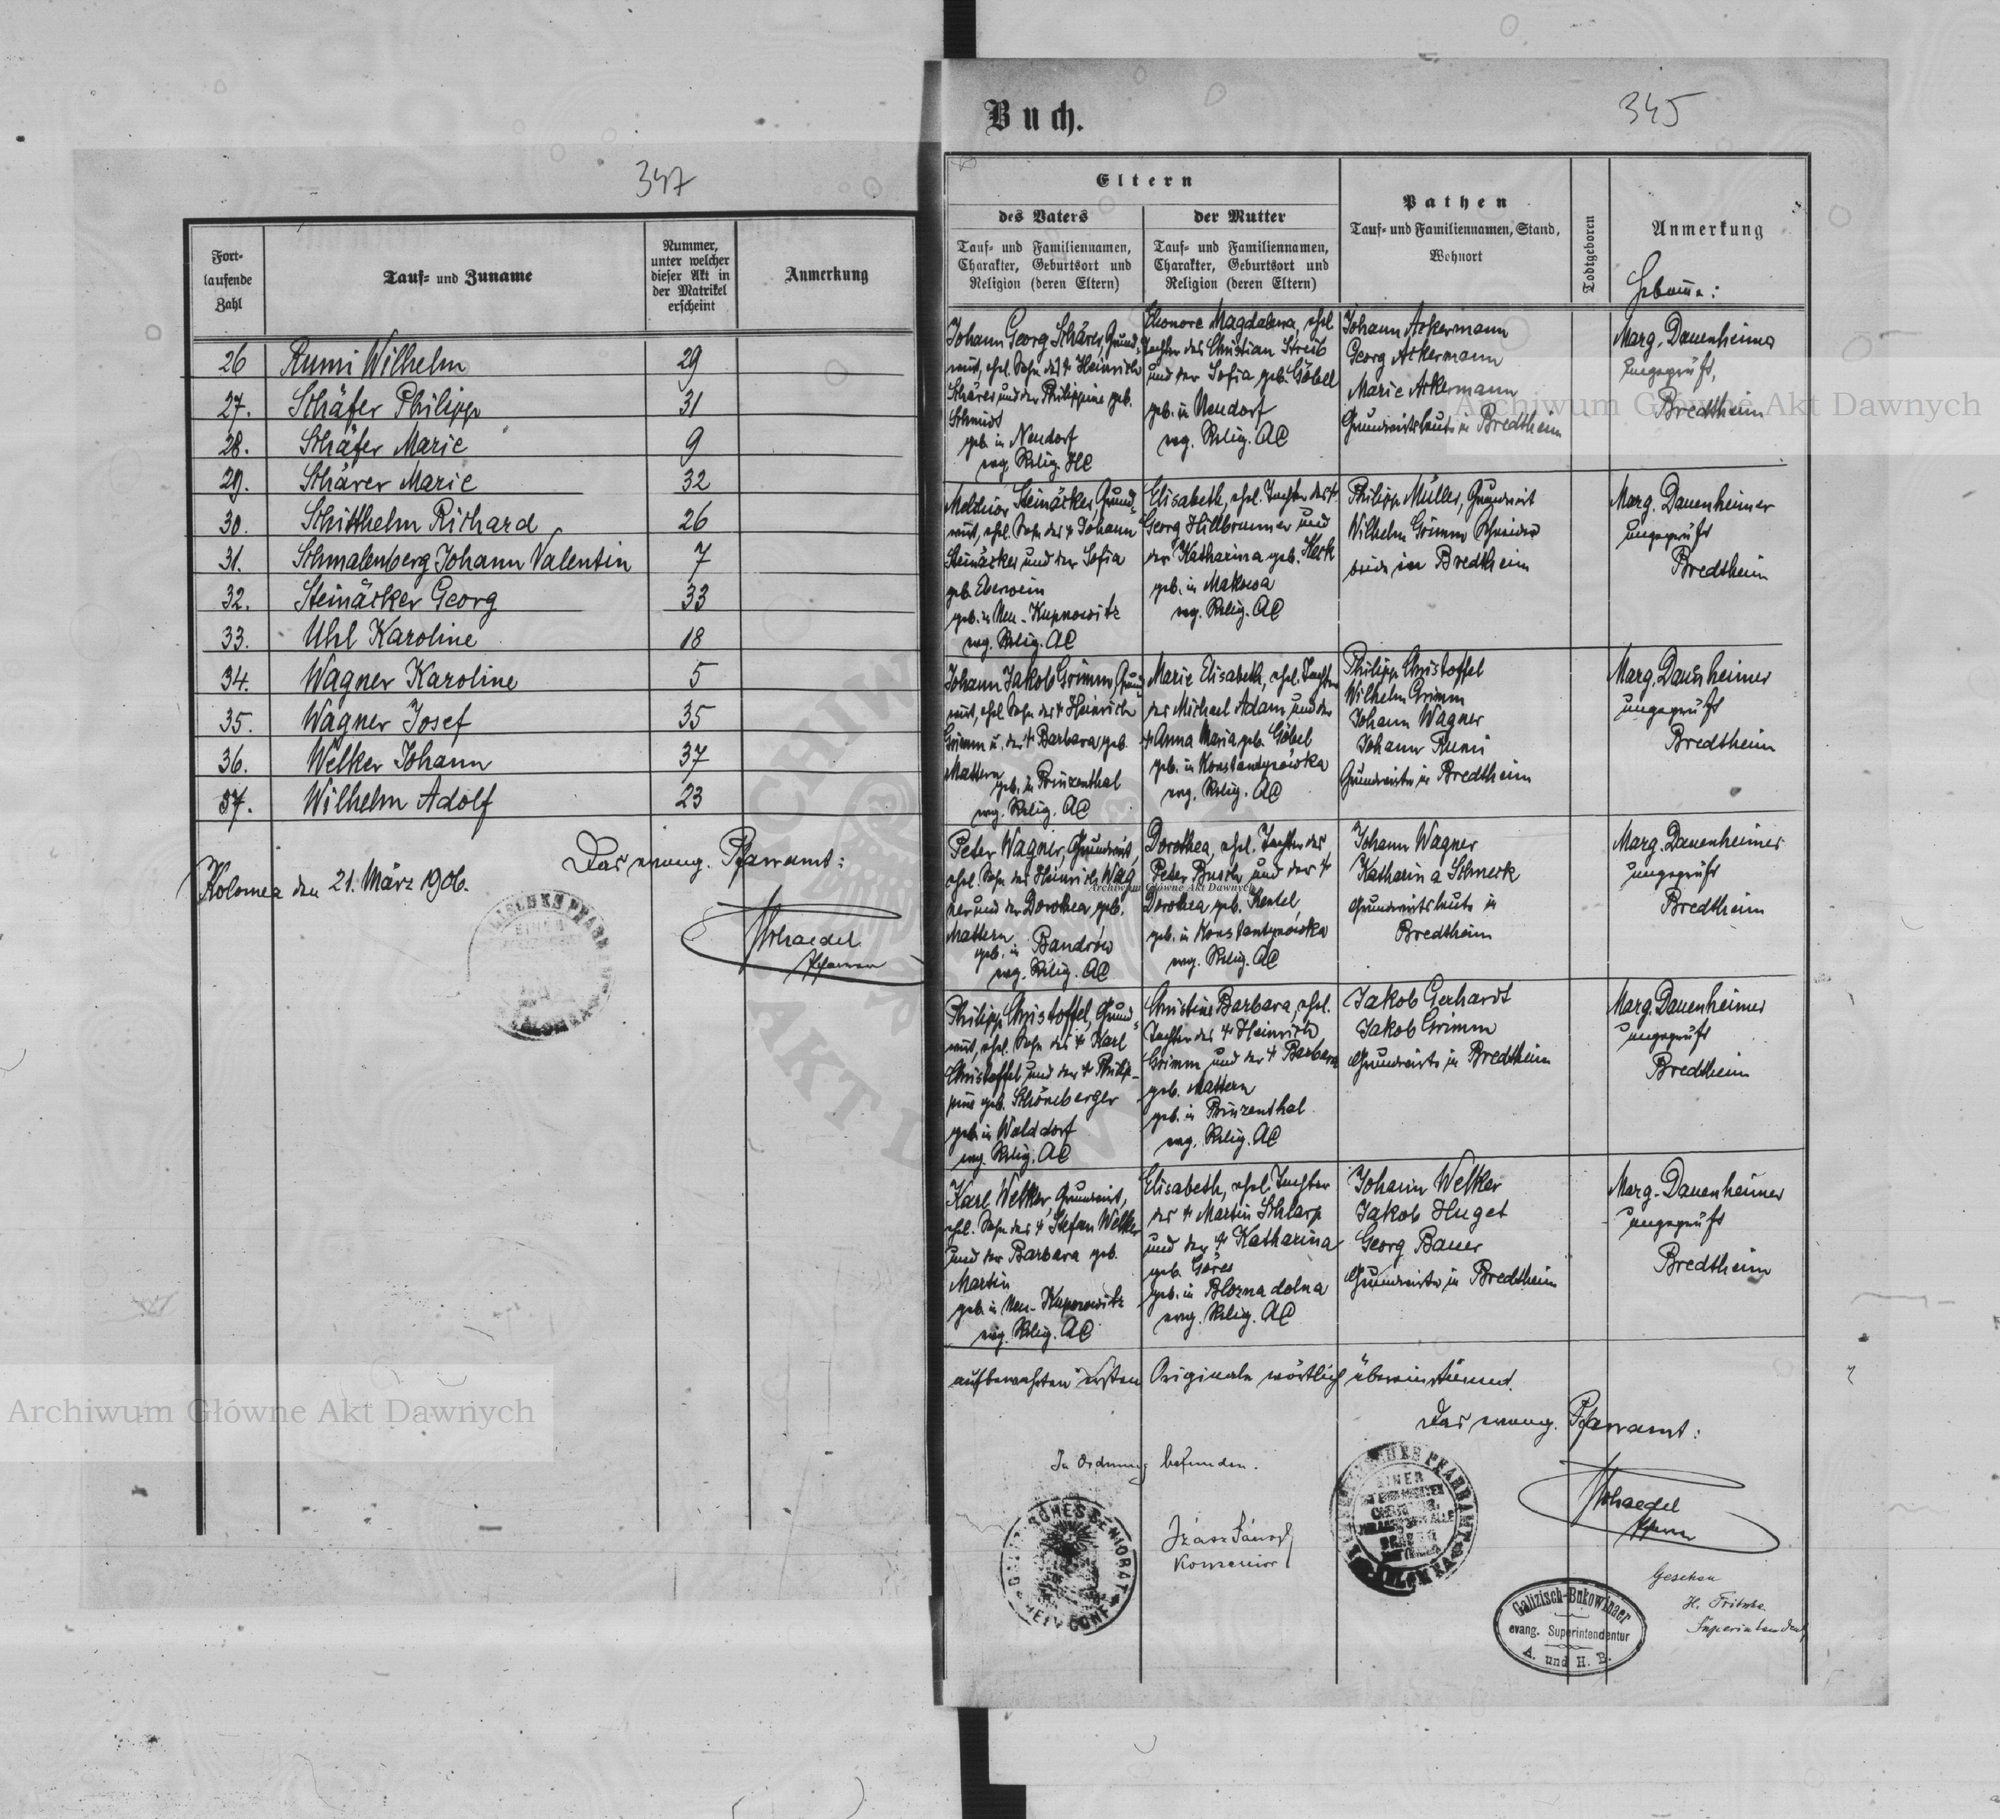 347
Fort-
laufende
Zahl
Tauf- und Zuname
Nummer,
unter welcher
dieser Akt in
der Matrikel
erscheint
Anmerkung
26 Rumi Wilhelm 29
27. Schäfer Philipp 31
28. Schäfer Marie 9
29. Schärer Marie 32
30. Schitthelm Richard 26
31. Schmalenberg Johann Valentin 7
32. Steinäcker Georg 33
33. Uhl Karoline 18
34. Wagner Karoline 5
35. Wagner Josef 35
36. Welker Johann 37
37. Wilhelm Adolf 23
Das evang. Pfarramt:
Kolomea den 21. März 1906.
Pfarrer
Buch.
345
Eltern
des Vaters
Tauf- und Familiennamen,
Charakter, Geburtsort und
Religion (deren Eltern)
der Mutter
Tauf- und Familiennamen,
Charakter, Geburtsort und
Religion (deren Eltern)
Pathen
Tauf- und Familiennamen, Stand,
Wohnort
Todtgeboren
Anmerkung
Johann Georg Schärer, Grund-
wirt, ehel. Sohn des † Heinrich
Schärer und der Philippine geb.
Schmidt
geb. in Neudorf
evg. Relig. HC
Eleonore Magdalena, ehel.
Tochter des Christian Streib
und der Sofia geb. Göbel
geb. in Neudorf
evg. Relig. AC
Johann Ackermann
Georg Ackermann
Marie Ackermann
Grundwirtsleute in Bredtheim
Marg. Dauenheimer
ungeprüft,
Bredtheim
Melchior Steinäcker, Grund-
wirt, ehel. Sohn des † Johann
Steinäcker und der Sofia
geb. Eberwein
geb. in Neu-Kupnowitz
evg. Relig. AC
Elisabeth, ehel. Tochter des †
Georg Hillbrunner und
der Katharina geb. Keck
geb. in Makowa
evg. Relig. AC
Philipp Müller, Grundwirt
Wilhelm Grimm Schneider
beide in Bredtheim
Marg. Dauenheimer
ungeprüft
Bredtheim
Johann Jakob Grimm, Grund-
wirt, ehel. Sohn des † Heinrich
Grimm u. der † Barbara geb.
Mattern
geb. in Prinzenthal
evg. Relig. AC
Marie Elisabeth, ehel. Tochter
des Michael Adam und der
† Anna Maria geb. Göbel
geb. in Konstantynówka
evg. Relig. AC
Philipp Christoffel
Wilhelm Grimm
Johann Wagner
Johann Rumi
Grundwirte in Bredtheim
Marg. Dauenheimer
ungeprüft
Bredtheim
Peter Wagner, Grundwirt,
ehel. Sohn des Heinrich Wag-
ner und der Dorothea geb.
Mattern
geb. in Bandrów
evg. Relig. AC
Dorothea, ehel. Tochter des
Peter Busch und der †
Dorothea geb. Kentel
geb. in Konstantynówka
evg. Relig. AC
Johann Wagner
Katharina Schmerk
Grundwirtsleute in
Bredtheim
Marg. Dauenheimer
ungeprüft
Bredtheim
Philipp Christoffel, Grund-
wirt, ehel. Sohn des † Karl
Christoffel und der † Philip-
pine geb. Schöneberger
geb. in Walddorf
evg. Relig. AC
Christine Barbara, ehel.
Tochter des † Heinrich
Grimm und der † Barbara
geb. Mattern
geb. in Prinzenthal
evg. Relig. AC
Jakob Gerhardt
Jakob Grimm
Grundwirte in Bredtheim
Marg. Dauenheimer
ungeprüft
Bredtheim
Karl Welker, Grundwirt,
ehel. Sohn des † Stefan Welker
und der Barbara geb.
Martin
geb. in Neu-Kupnowitz
evg. Relig. AC
Elisabeth, ehel. Tochter
des † Martin Schlarp
und der † Katharina
geb. Göres
geb. in Blozna dolna
evg. Relig. AC
Johann Welker
Jakob Huget
Georg Bauer
Grundwirte in Bredtheim
Marg. Dauenheimer
ungeprüft
Bredtheim
aufbewahrten ersten Originale wörtlich übereinstimmt.
Das evang. Pfarramt:
In Ordnung befunden.
Konsenior
Pfarrer
Gesehen
H. Fritsche
Superintendent
Galizisch-Bukowinaer
evang. Superintendentur
A. und H. B.
Archiwum Główne Akt Dawnych
Archiwum Główne Akt Dawnych
Archiwum Główne Akt Dawnych